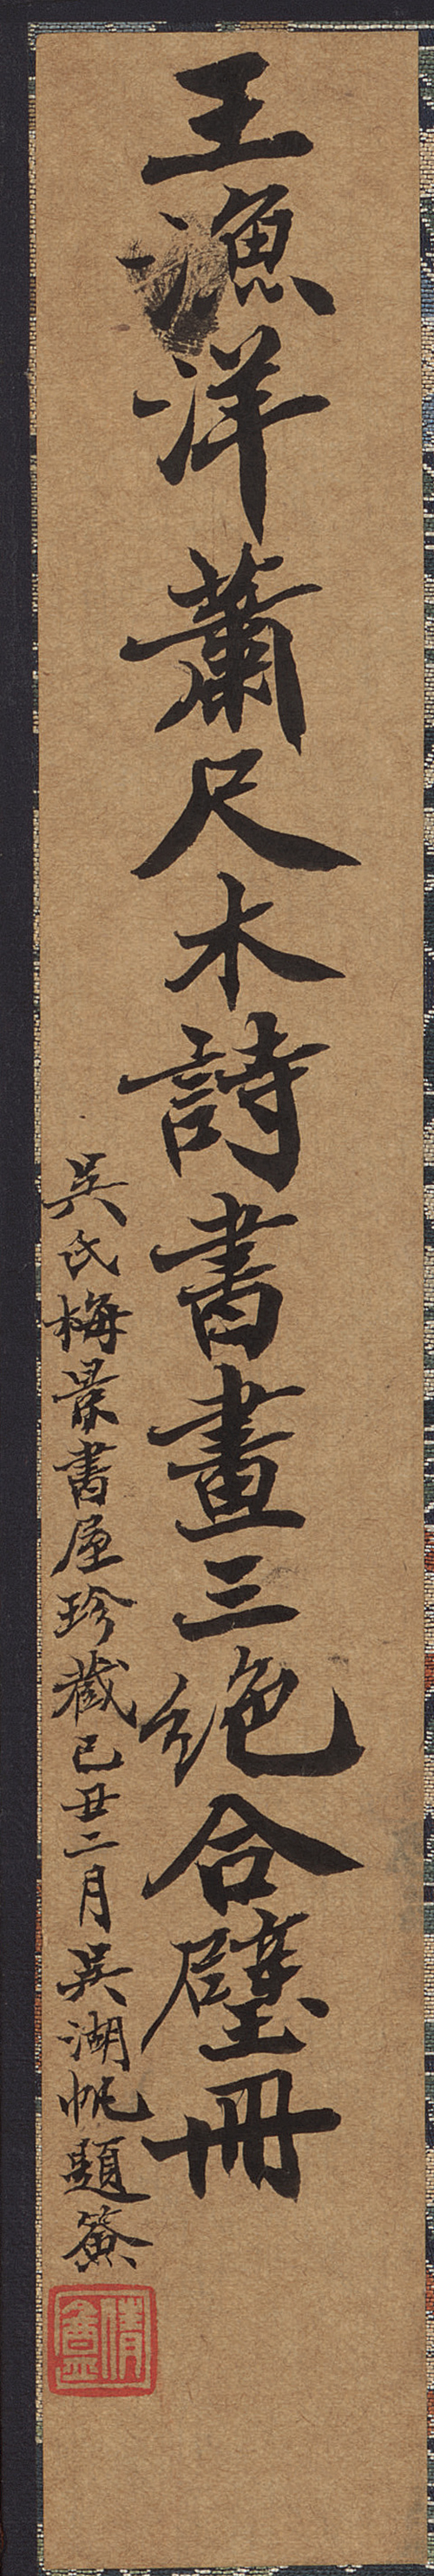 王漁洋蕭尺木詩書畫三絕合璧冊
吳氏梅景書屋珍藏己丑二月吳湖帆題簽